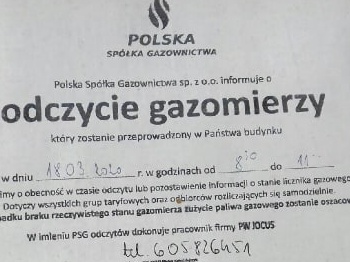 POLSKA
SPÓŁKA GAZOWNICTWA
Polska Spółka Gazownictwa sp. z o.o. informuje o
odczycie gazomierzy
który zostanie przeprowadzony w Państwa budynku
w dniu 18.03.2020 r. w godzinach od 8³⁰ do 11
imy o obecność w czasie odczytu lub pozostawienie informacji o stanie licznika gazowego
Dotyczy wszystkich grup taryfowych oraz odbiorców rozliczających się samodzielnie.
adku braku rzeczywistego stanu gazomierza zużycie paliwa gazowego zostanie oszacow
W imieniu PSG odczytów dokonuje pracownik firmy PW JOCUS
tel. 605826451